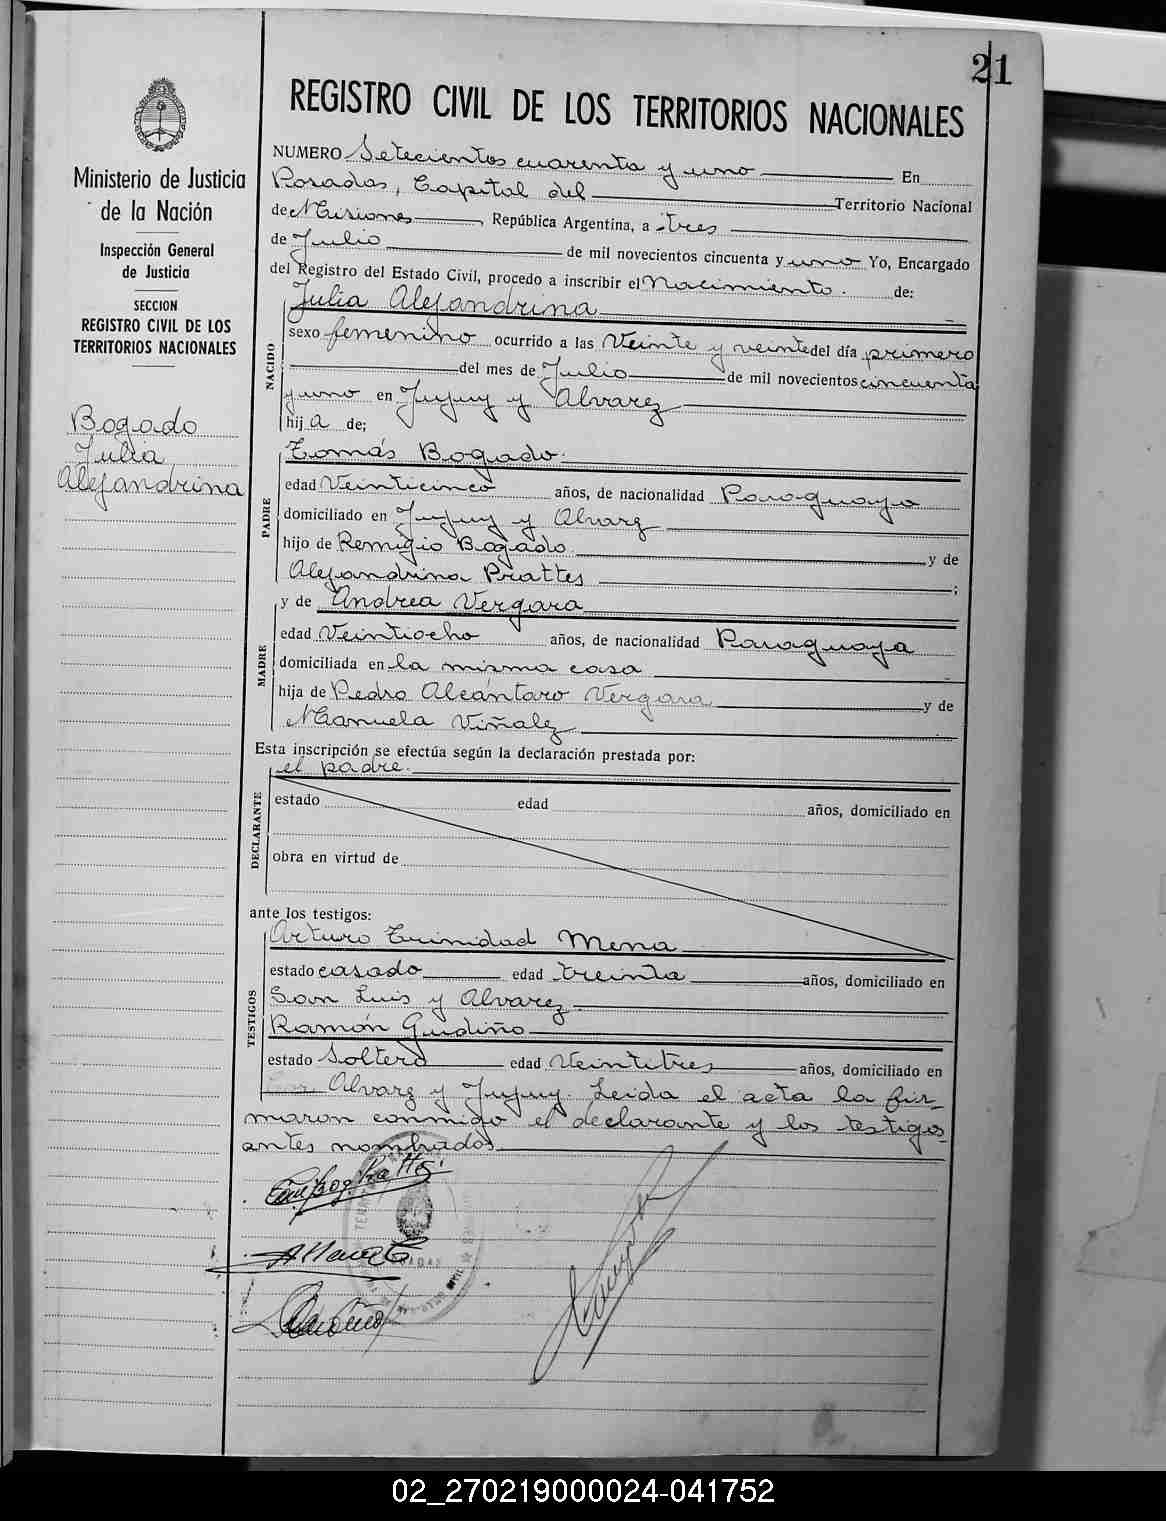 21
REGISTRO CIVIL DE LOS TERRITORIOS NACIONALES
Ministerio de Justicia
de la Nación
Inspección General
de Justicia
SECCION
REGISTRO CIVIL DE LOS
TERRITORIOS NACIONALES
Bogado
Julia
Alejandrina
NUMERO Setecientos cuarenta y uno En
Posadas, Capital del Territorio Nacional
de Misiones, República Argentina, a tres
de Julio de mil novecientos cincuenta y uno Yo, Encargado
del Registro del Estado Civil, procedo a inscribir el Nacimiento. de:
NACIDO
Julia Alejandrina
sexo femenino ocurrido a las Veinte y veinte del día primero
del mes de Julio de mil novecientos cincuenta
y uno en Jujuy y Alvarez
hija de;
PADRE
Tomás Bogado.
edad Veinticinco años, de nacionalidad Paraguayo
domiciliado en Jujuy y Alvarz
hijo de Remigio Bogado y de
Alejandrina Prattes ;
MADRE
y de Andrea Vergara
edad Veintiocho años, de nacionalidad Paraguaya
domiciliada en la misma casa
hija de Pedro Alcántaro Vergara y de
Manuela Viñalz
Esta inscripción se efectúa según la declaración prestada por:
el padre.
DECLARANTE
estado edad años, domiciliado en
obra en virtud de
ante los testigos:
TESTIGOS
Arturo Trinidad Mena
estado casado edad treinta años, domiciliado en
San Luis y Alvarez
Ramón Gudiño
estado Soltero edad Veintitres años, domiciliado en
Alvarz y Jujuy. Leida el acta la fir-
maron conmigo el declarante y los testigos
antes nombrados
02_270219000024-041752